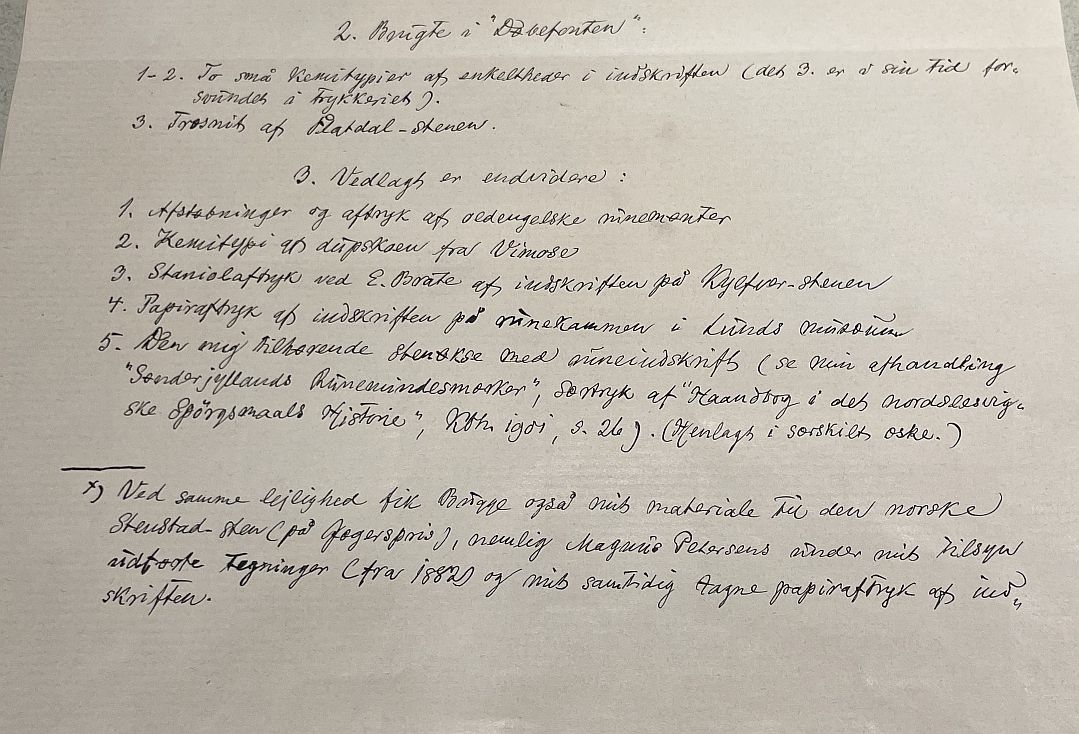 2. Brugte i "Døbefonten":
1-2. To små Kemitypier af enkeltheder i indskriften (det 3. er i sin tid for-
svundet i trykkeriet).
3. Træsnit af Flatdal-stenen.
3. Vedlagt er endvidere:
1. Afstøbninger og aftryk af oldengelske runemønter
2. Kemitypi af dupskoen fra Vimose
3. Staniolaftryk ved E. Brate af indskriften på Kylfver-stenen
4. Papiraftryk af indskriften på runekammen i Lunds museum
5. Den mig tilhørende stenøkse med runeindskrift (se min afhandling
"Sønderjyllands Runemindesmærker", særtryk af "Haandbog i det nordslesvig-
ske Spörgsmaals Historie", Kbh. 1901, s. 26). (Henlagt i særskilt æske.)
x) Ved samme lejlighed fik Bugge også mit materiale til den norske
Stenstad-sten (på Jægerspris), nemlig Magnus Petersens under mit tilsyn
udførte tegninger (fra 1882) og mit samtidig tagne papiraftryk af ind-
skriften.